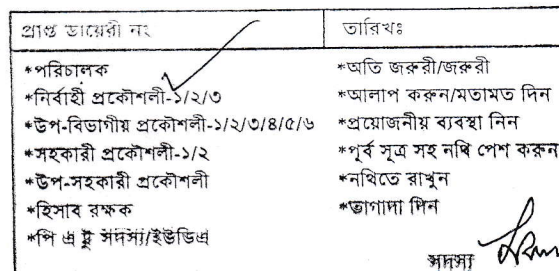 প্রাপ্ত ডায়েরী নং
তারিখঃ
*পরিচালক
*নির্বাহী প্রকৌশলী-১/২/৩
*উপ-বিভাগীয় প্রকৌশলী-১/২/৩/৪/৫/৬
*সহকারী প্রকৌশলী-১/২
*উপ-সহকারী প্রকৌশলী
*হিসাব রক্ষক
*পি এ টু সদস্য/ইউডিএ
*অতি জরুরী/জরুরী
*আলাপ করুন/মতামত দিন
*প্রয়োজনীয় ব্যবস্থা নিন
*পূর্ব সূত্র সহ নথি পেশ করুন
*নথিতে রাখুন
*তাগাদা দিন
সদস্য